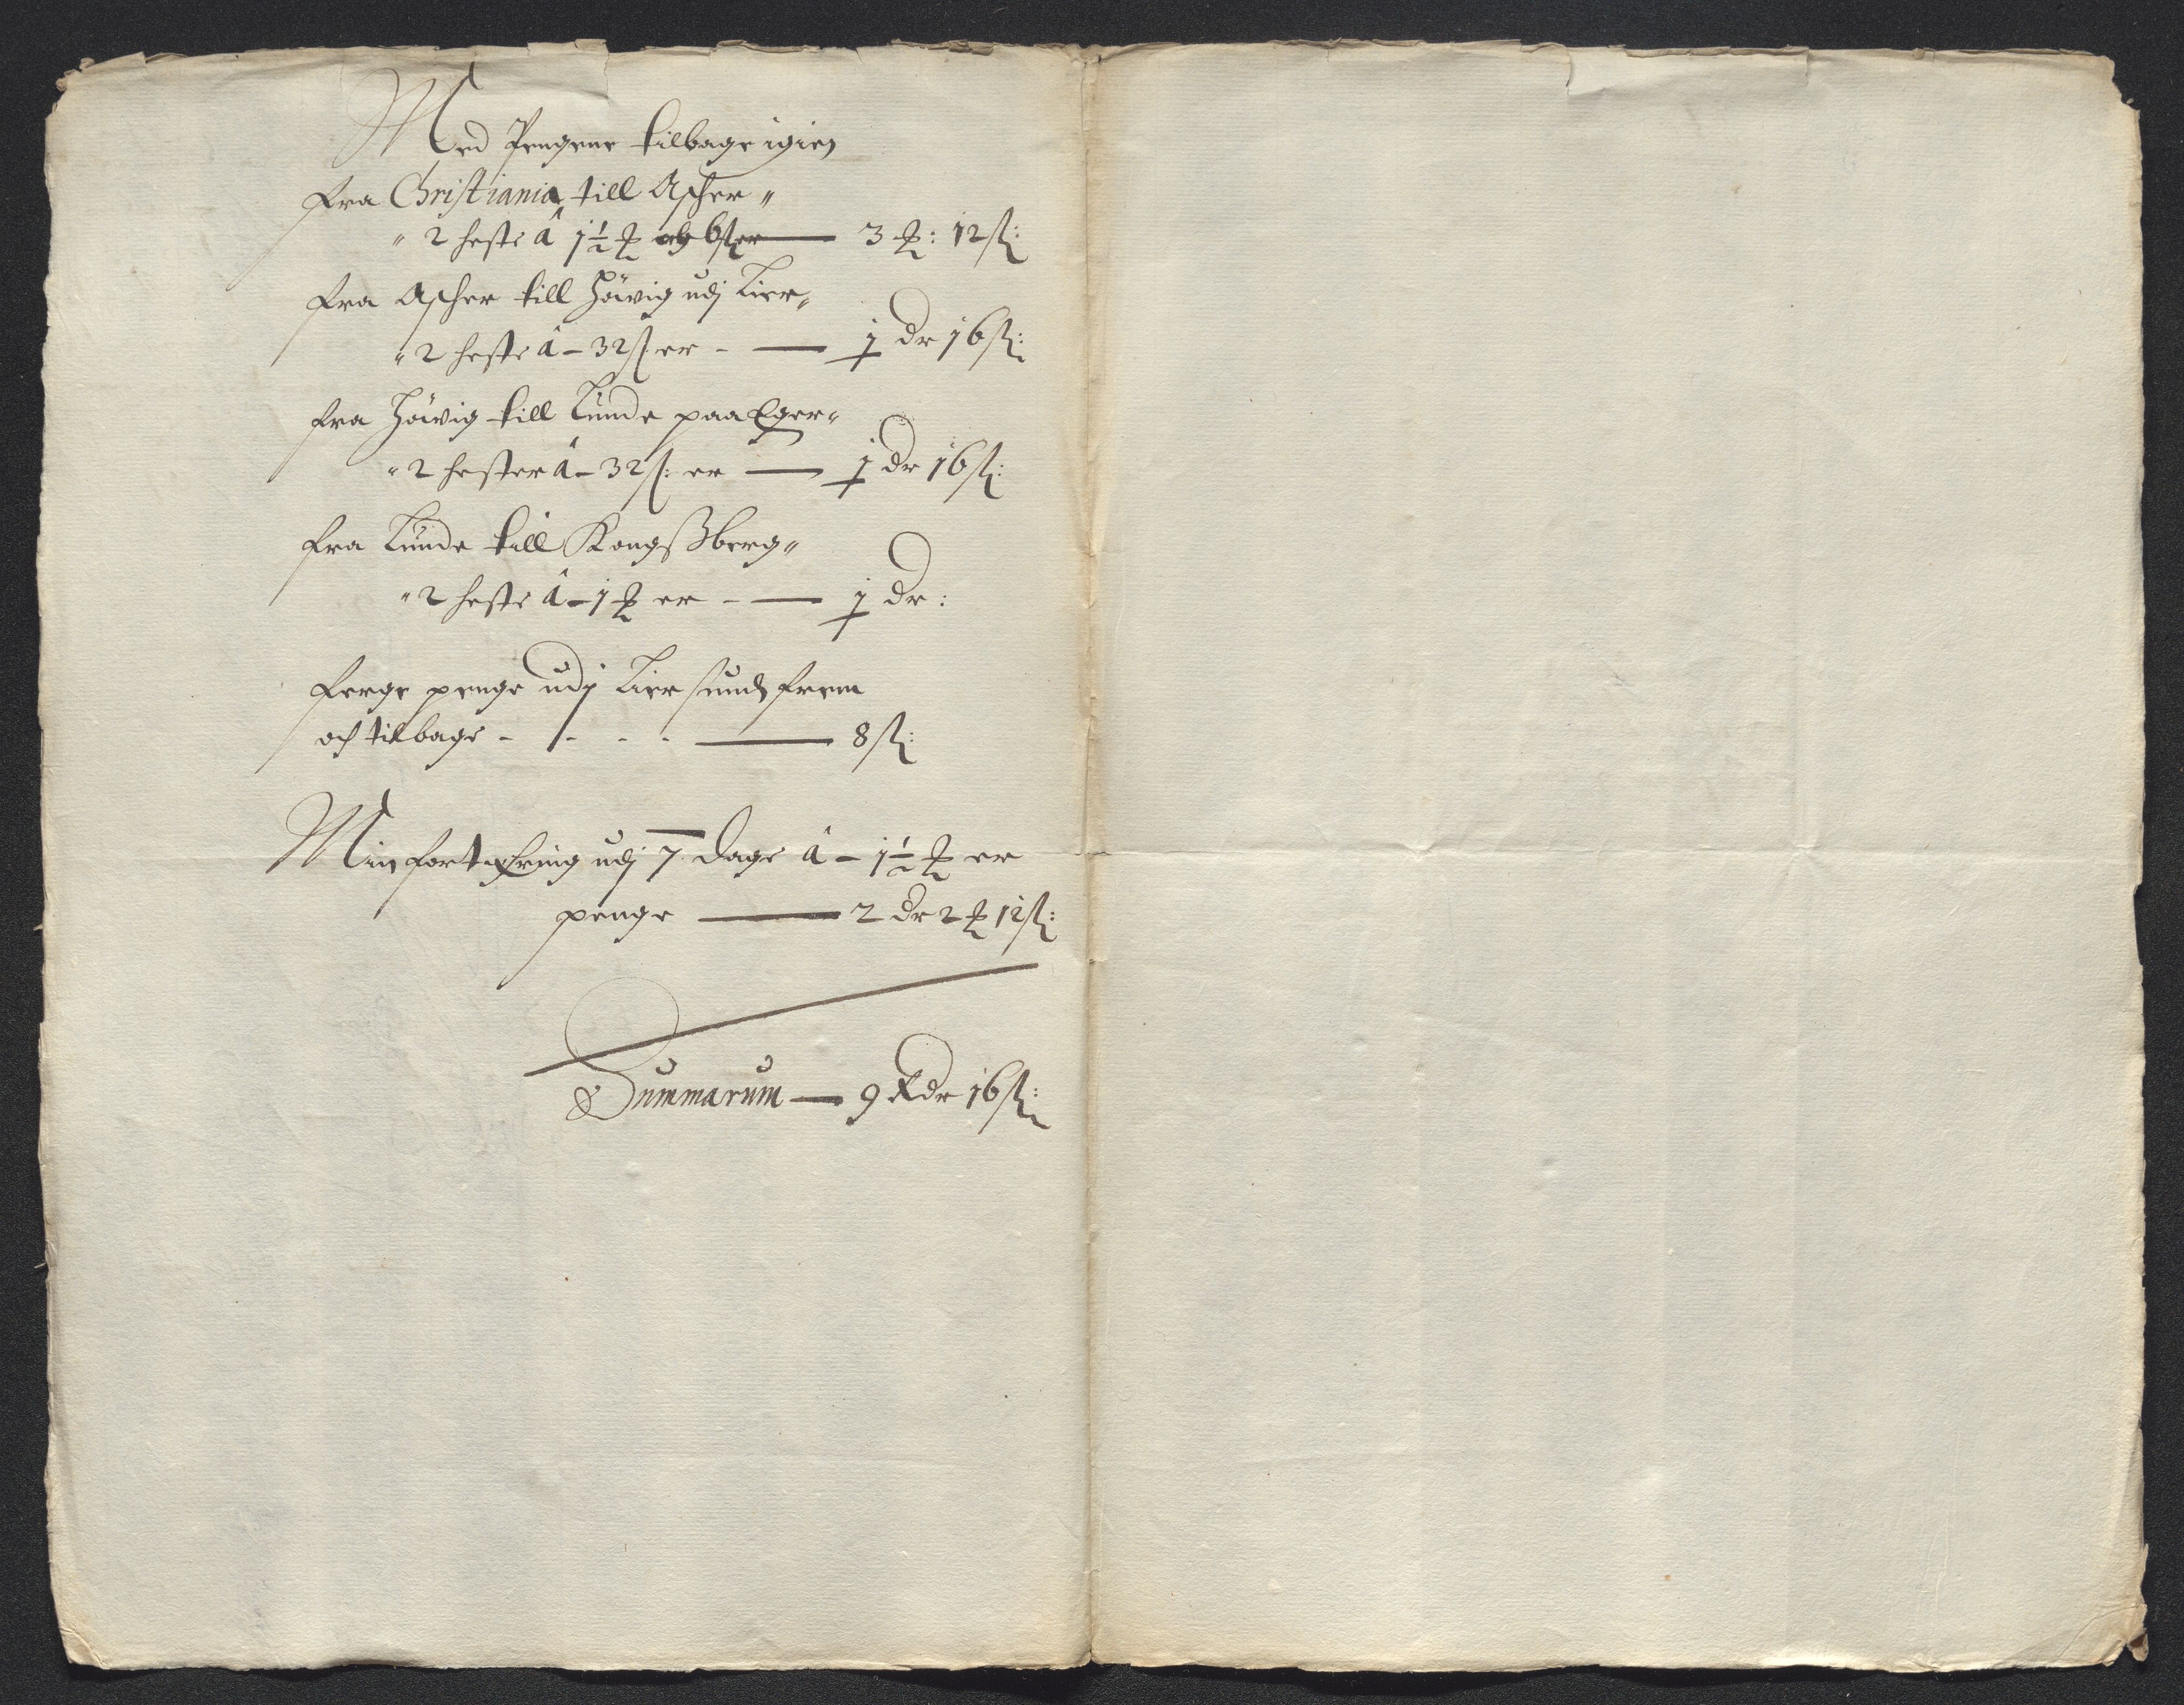 Med Pengene tilbage igien
fra Christiania till Ascher„
„ 2 heste â 1½ ℔ och 6 ß er — 3 ℔: 12 ß:
fra Ascher till Höwig udj Lier„
„ 2 heste â - 32 ß er - — 1 dr 16 ß:
fra Höwig till Lunde paa Eger„
„ 2 hester â - 32 ß: er — 1 dr 16 ß:
fra Lunde till Kongßberg„
„ 2 heste â - 1 ℔ er - — 1 dr:
ferge penge udj Lier sund frem
och tilbage - - - - — 8 ß:
Min fortæhring udj 7 dage â - 1½ ℔ er
penge — 2 dr 2 ℔ 12 ß:
Summarum — 9 Rdr 16 ß: